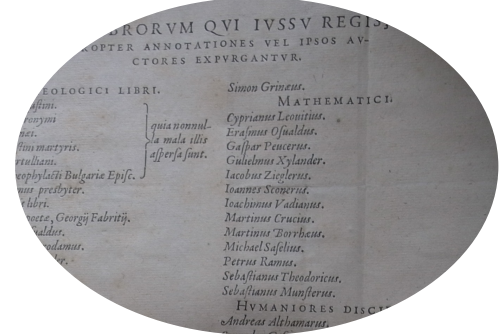 BRORVM QVI IVSSV REGIS
ROPTER ANNOTATIONES VEL IPSOS AV-
CTORES EXPVRGANTVR.
EOLOGICI LIBRI.
ustini.
ronymi
stini martyris.
rtulliani.
eophylacti Bulgariæ Episc.
nus presbyter.
s libri.
poetæ, Georgij Fabritij.
sualdus.
rodamus.
quia nonnul-
la mala illis
aspersa sunt.
Simon Grinæus.
MATHEMATICI.
Cyprianus Leouitius.
Erasmus Osualdus.
Gaspar Peucerus.
Gulielmus Xylander.
Iacobus Zieglerus.
Ioannes Sconerus.
Ioachimus Vadianus.
Martinus Crucius.
Martinus Borrhæus.
Michael Safelius.
Petrus Ramus.
Sebastianus Theodoricus.
Sebastianus Munsterus.
HVMANIORES DISCI
Andreas Althamarus.